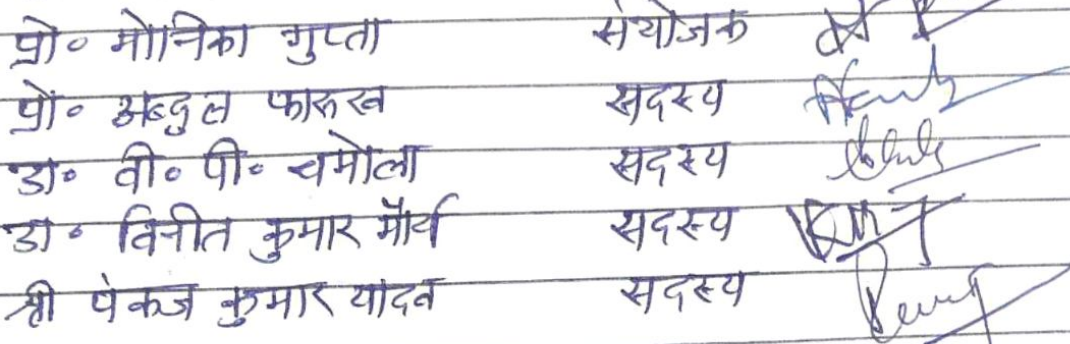 प्रो० मोनिका गुप्ता संयोजक
प्रो० अब्दुल फारुख सदस्य
डा० वी० पी० चमोला सदस्य
डा० विनीत कुमार मौर्य सदस्य
श्री पंकज कुमार यादव सदस्य